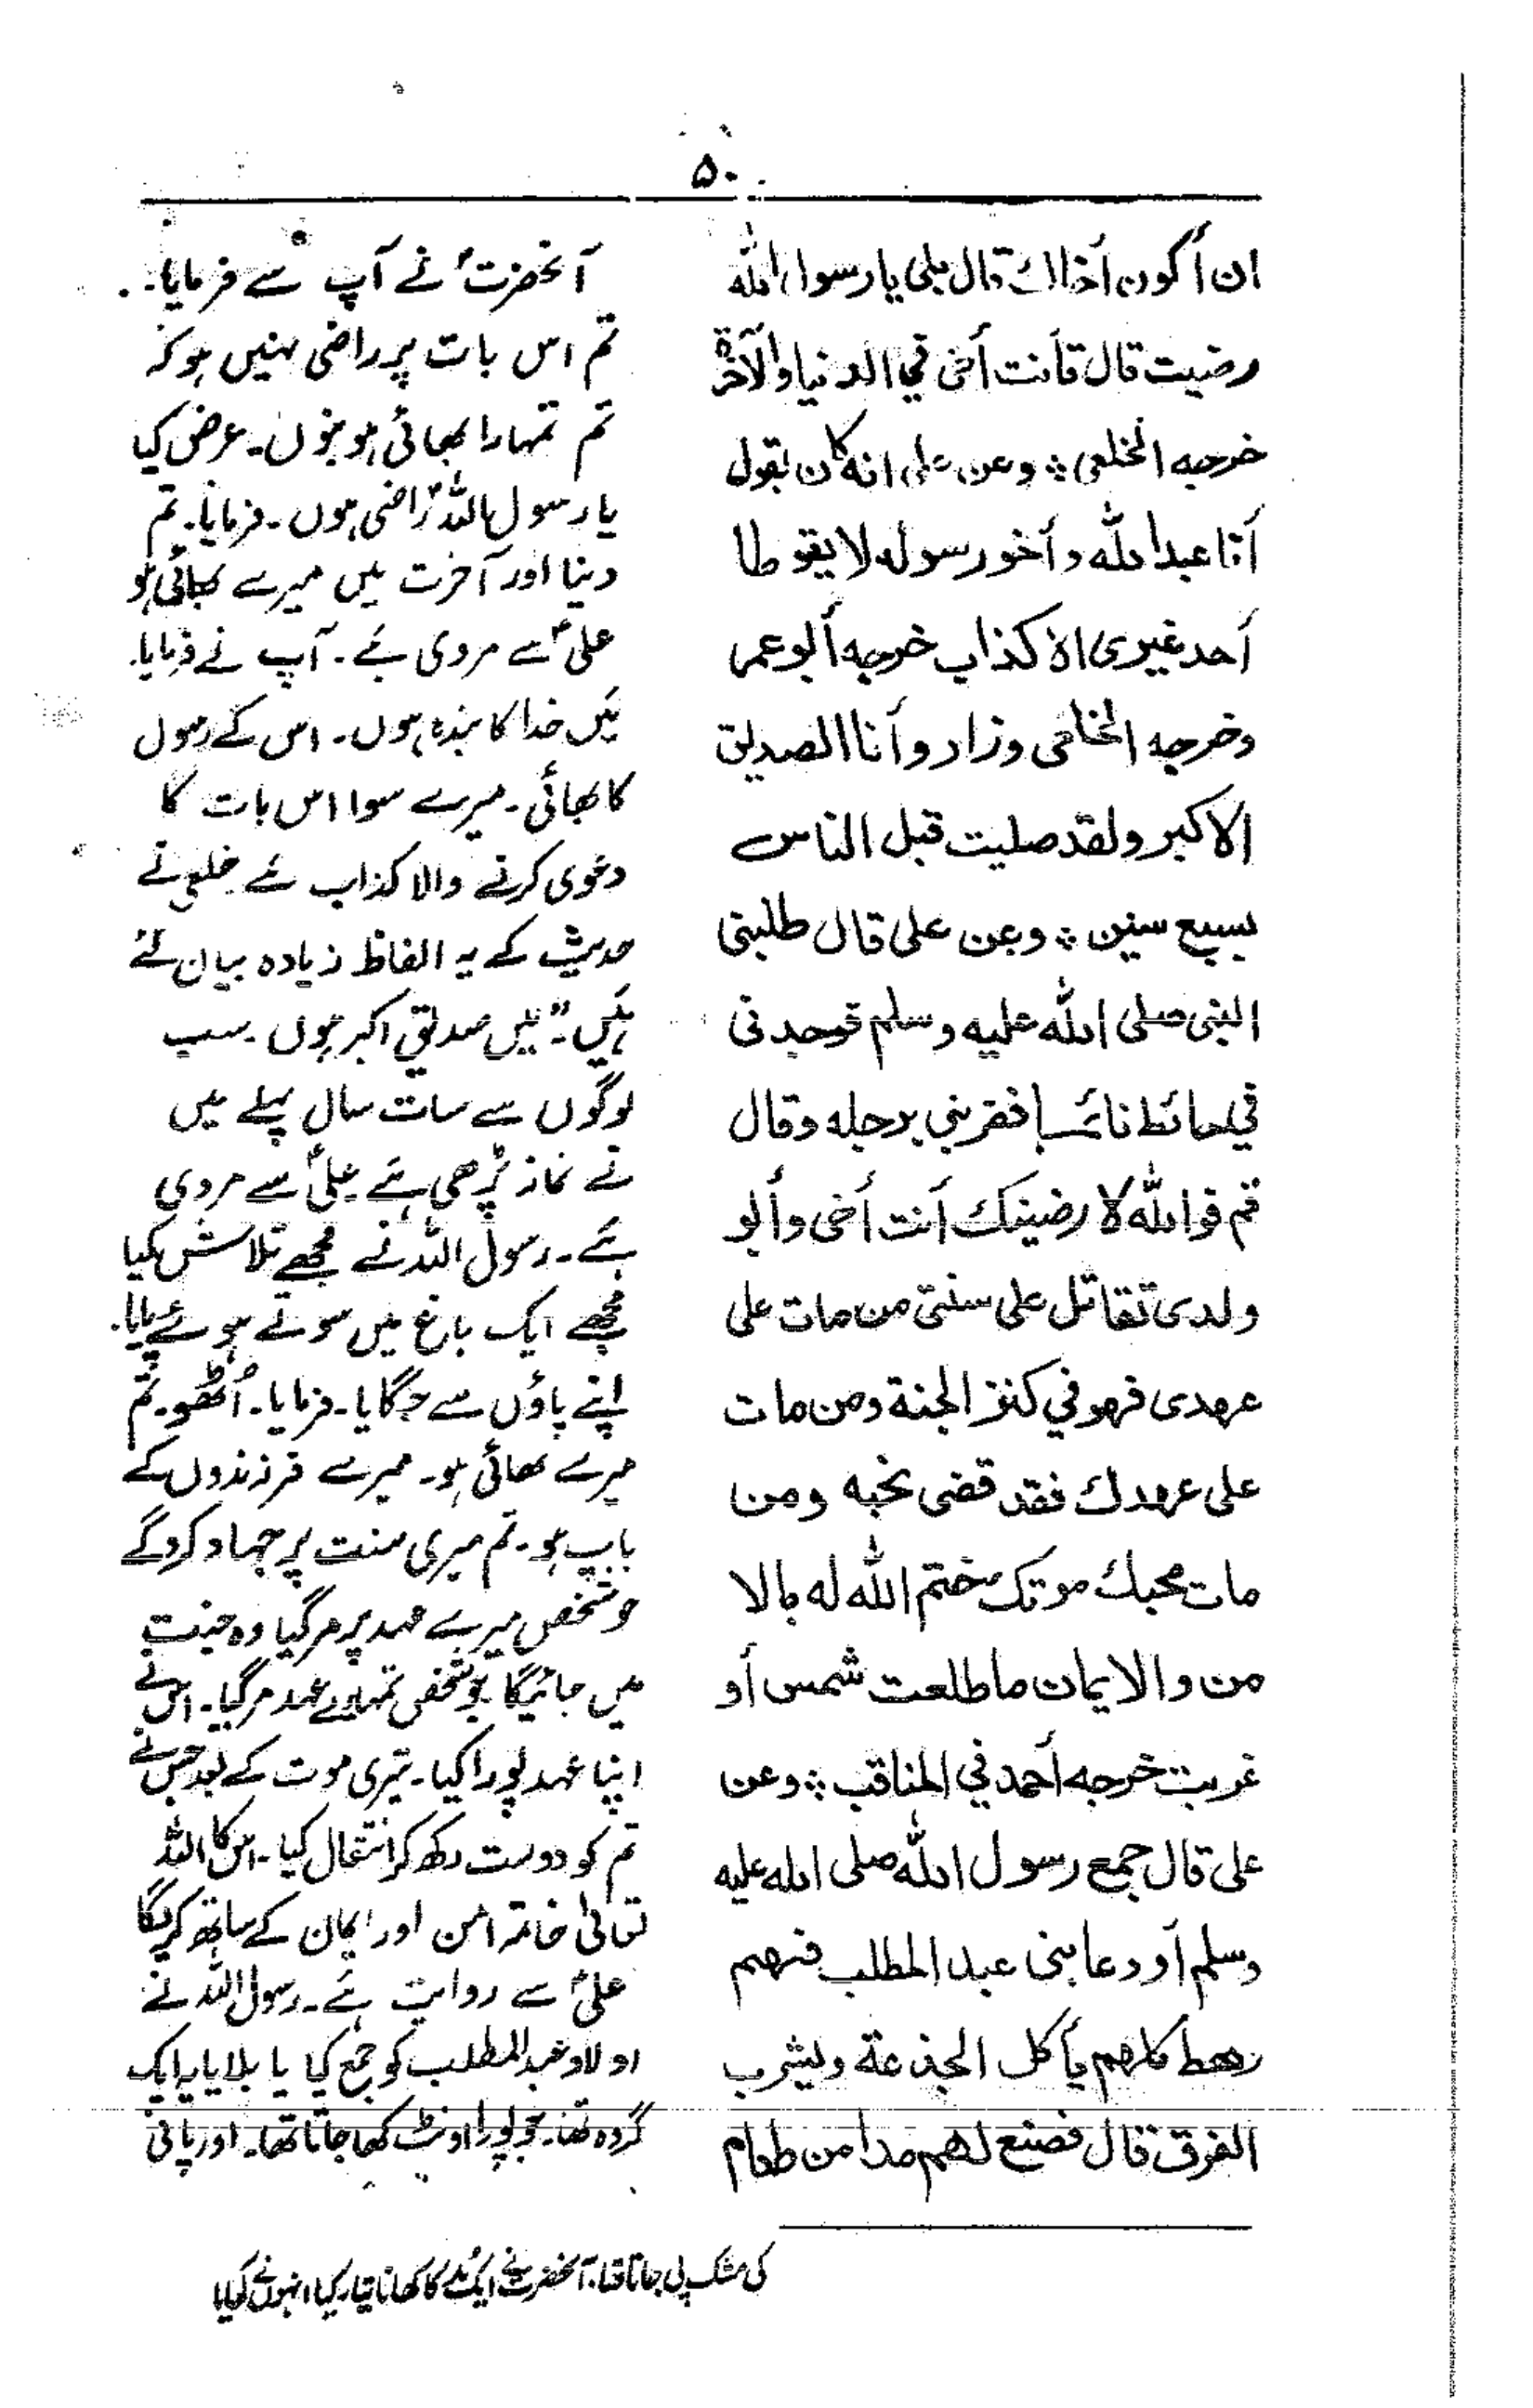 ۵۰
ان أكون أخاك قال بلى يا رسول الله
رضيت قال فأنت أخى في الدنيا والآخرة
خرجه الخلعى ۞ وعن على انه كان يقول
أنا عبد الله وأخو رسوله لا يقولها
أحد غيرى الا كذاب خرجه أبو عمر
وخرجه الخلعى وزاد وأنا الصديق
الاكبر ولقد صليت قبل الناس
بسبع سنين ۞ وعن على قال طلبنى
النبى صلى الله عليه وسلم فوجدنى
في حائط نائما فضربني برجله وقال
قم فوالله لا رضينك أنت أخى وأبو
ولدى تقاتل على سنتى من مات على
عهدى فهو في كنز الجنة ومن مات
على عهدك فقد قضى نحبه ومن
مات محبك موتك ختم الله له بالا
من والايمان ما طلعت شمس أو
غربت خرجه أحمد في المناقب ۞ وعن
على قال جمع رسول الله صلى الله عليه
وسلم أو دعا بنى عبد المطلب فيهم
رهط كلهم يأكل الجذعة ويشرب
الفرق قال فصنع لهم مدا من طعام
آنحضرتؐ نے آپ سے فرمایا۔
تم اس بات پر راضی نہیں ہو کہ
تم تمہارا بھائی ہو بنوں۔ عرض کیا
یا رسول اللہؐ راضی ہوں۔ فرمایا۔ تم
دنیا اور آخرت میں میرے بھائی ہو
علیؑ سے مروی ہے۔ آپ نے فرمایا۔
میں خدا کا بندہ ہوں۔ اس کے رسول
کا بھائی۔ میرے سوا اس بات کا
دعوی کرنے والا کذاب ہے خلعی نے
حدیث کے یہ الفاظ زیادہ بیان کئے
ہیں۔ "میں صدیق اکبر ہوں۔ سب
لوگوں سے سات سال پہلے میں
نے نماز پڑھی ہے علیؑ سے مروی
ہے۔ رسول اللہ نے مجھے تلاش کیا
مجھے ایک باغ میں سوئے ہوئے پایا۔
اپنے پاؤں سے جگایا۔ فرمایا۔ اُٹھو۔ تم
میرے بھائی ہو۔ میرے فرزندوں کے
باپ ہو۔ تم میری سنت پر جہاد کرو گے
جو شخص میرے عہد پر مر گیا وہ جنت
میں جائیگا جو شخص تمہارے عہد مر گیا۔ اس نے
اپنا عہد پورا کیا۔ تیری موت کے بعد جس نے
تم کو دوست رکھ کر انتقال کیا۔ اس کا اللہ
تعالیٰ خاتمہ امن اور ایمان کے ساتھ کریگا
علیؑ سے روایت ہے۔ رسول اللہ نے
اولاد عبد المطلب کو جمع کیا یا بلایا یہ ایک
گروہ تھا۔ جو پورا اونٹ کھا جاتا تھا۔ اور پانی
کی مشک پی جاتا تھا۔ آنحضرت نے ایک مُد کا کھانا تیار کیا انہوں نے کھایا